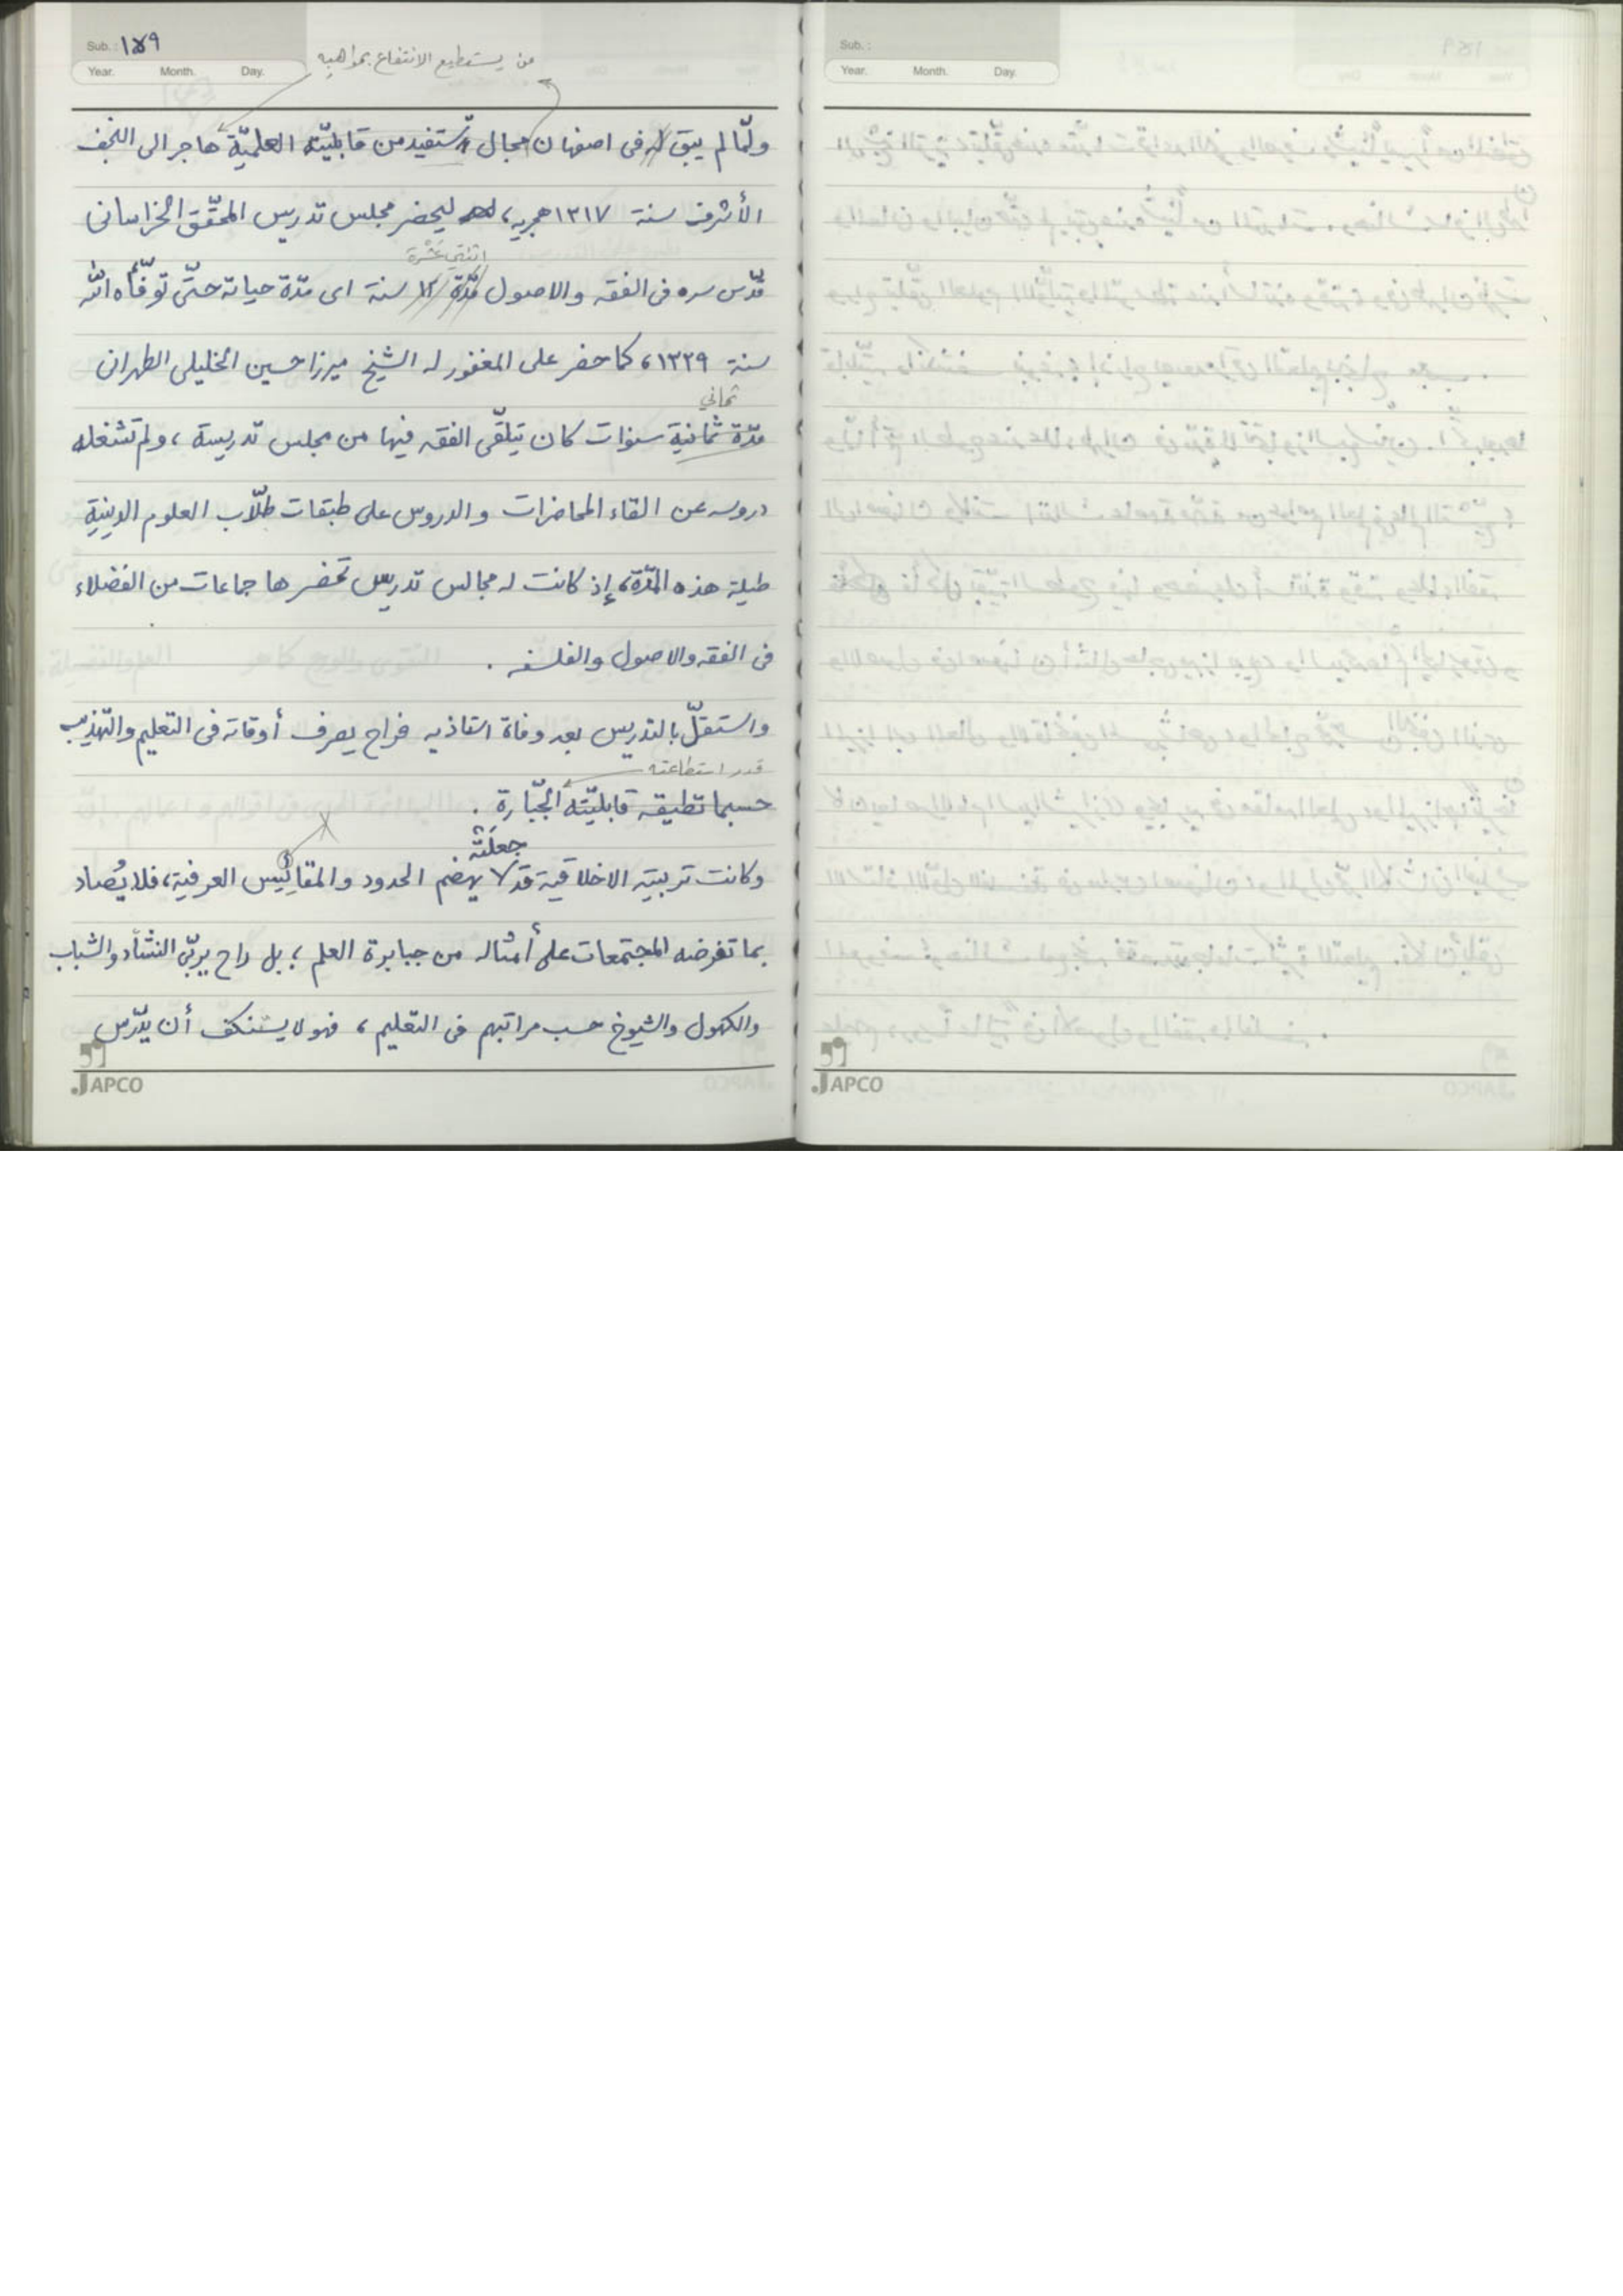 Sub.: ١٥٩
Year. Month. Day.
من يستطيع الانتفاع بمواهبه
ولمّا لم يبق له فى اصفهان مجال يستفيد من قابليّته العلميّة هاجر الى النجف
الأشرف سنة ١٣١٧ هجريه، ليحضر مجلس تدريس المحقّق الخراسانى
اثنتي عَشْرة
قدّس سره فى الفقه والاصول مدّة ١٢ سنة اى مدّة حياته حتّى توفّاه اللّه
سنة ١٣٢٩، كما حضر على المغفور له الشيخ ميرزا حسين الخليلى الطهرانى
ثماني
مدّة ثمانية سنوات كان يتلقّى الفقه فيها من مجلس تدريسة، ولم تشغله
دروسه عن القاء المحاضرات والدروس على طبقات طلّاب العلوم الدينية
طيلة هذه المدّة، إذ كانت له مجالس تدريس تحضرها جماعات من الفضلاء
فى الفقه والاصول والفلسفه .
واستقلّ بالتدريس بعد وفاة استاذيه فراح يصرف أوقاته فى التعليم والتهذيب
قدر استطاعته
حسبما تطيقه قابليّته الجبّارة .
جعلَتْه
وكانت تربيته الاخلاقية قد لا يهضم الحدود والمقاييس العرفية، فلا يُصاد
بما تفرضه المجتمعات على أمثاله من جبابرة العلم؛ بل راح يربّى النشأ والشباب
والكهول والشيوخ حسب مراتبهم فى التعليم، فهو لا يستنكف أن يدّرس
JAPCO
Sub.:
Year. Month. Day.
JAPCO